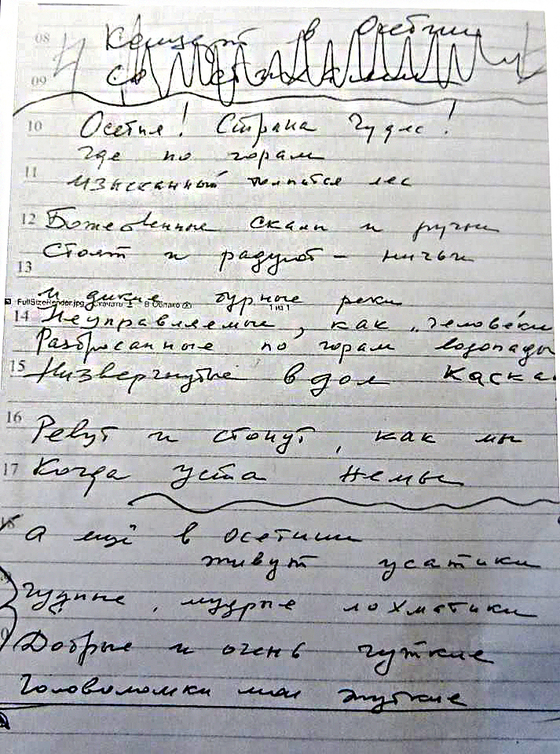 08
Концерт в Осетии
09
10
Осетия! Страна Чудес!
где по горам
11
изысканный толпится лес
12
Божественные скалы и ручьи
Стоят и радуют - ничьи
13
и дикие бурные реки
FullSizeRender.jpg Скачать В Облако 1 из 1
14
Неуправляемые, как "человеки
Разбросанные по горам водопады
15
Низвергнутые в дол каска
16
Ревут и стонут, как мы
17
Когда уста немы
А ещё в Осетии
живут усатики
Чудные, мудрые лохматики
Добрые и очень чуткие
Головоломки мои жуткие